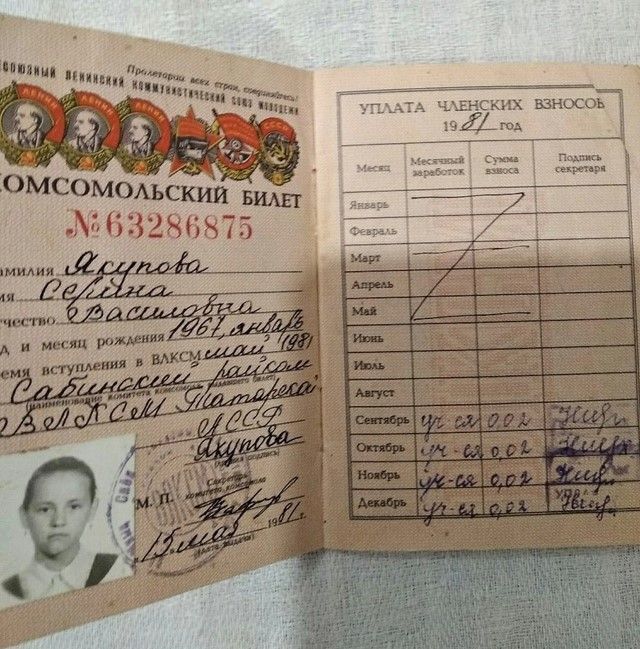 Пролетарии всех стран, соединяйтесь!
СОЮЗНЫЙ ЛЕНИНСКИЙ КОММУНИСТИЧЕСКИЙ СОЮЗ МОЛОДЕЖИ
ЛЕНИН ЛЕНИН ЛЕНИН
ОМСОМОЛЬСКИЙ БИЛЕТ
№63286875
амилия Якупова
мя Серина
чество Василовна
д и месяц рождения 1967, январь
емя вступления в ВЛКСМ май 1981
Сабинский райком
(наименование комитета комсомола, выдавшего билет)
ВЛКСМ Татарской
АССР
Якупова
(личная подпись)
М. П.
Секретарь
комитета комсомола
15 мая 1981 г.
(дата выдачи)
УПЛАТА ЧЛЕНСКИХ ВЗНОСОВ
1981 год
Месяц Месячный заработок Сумма взноса Подпись секретаря
Январь
Февраль
Март
Апрель
Май
Июнь
Июль
Август
Сентябрь уч-ся 0,02
Октябрь уч-ся 0,02
Ноябрь уч-ся 0,02
Декабрь уч-ся 0,02